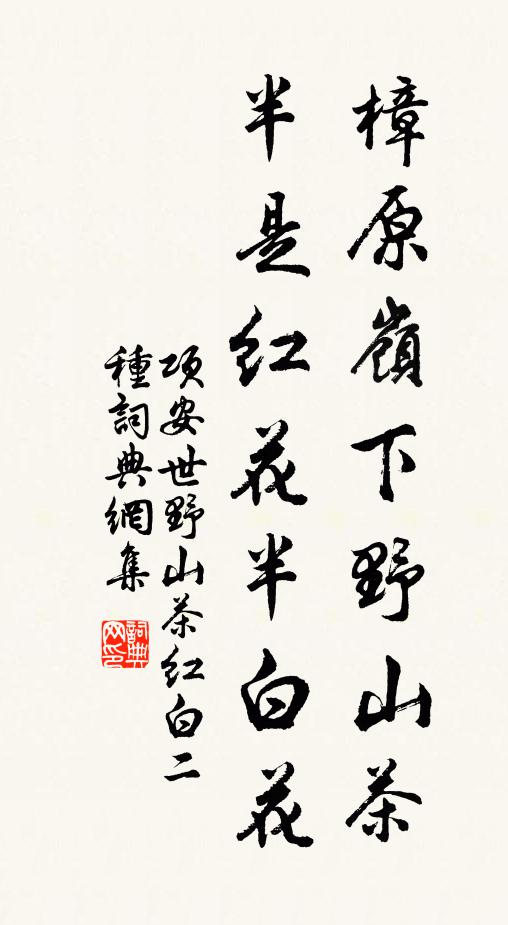 樟原嶺下野山茶
半是紅花半白花
項安世野山茶紅白二
種詞典網集
詞典
网印